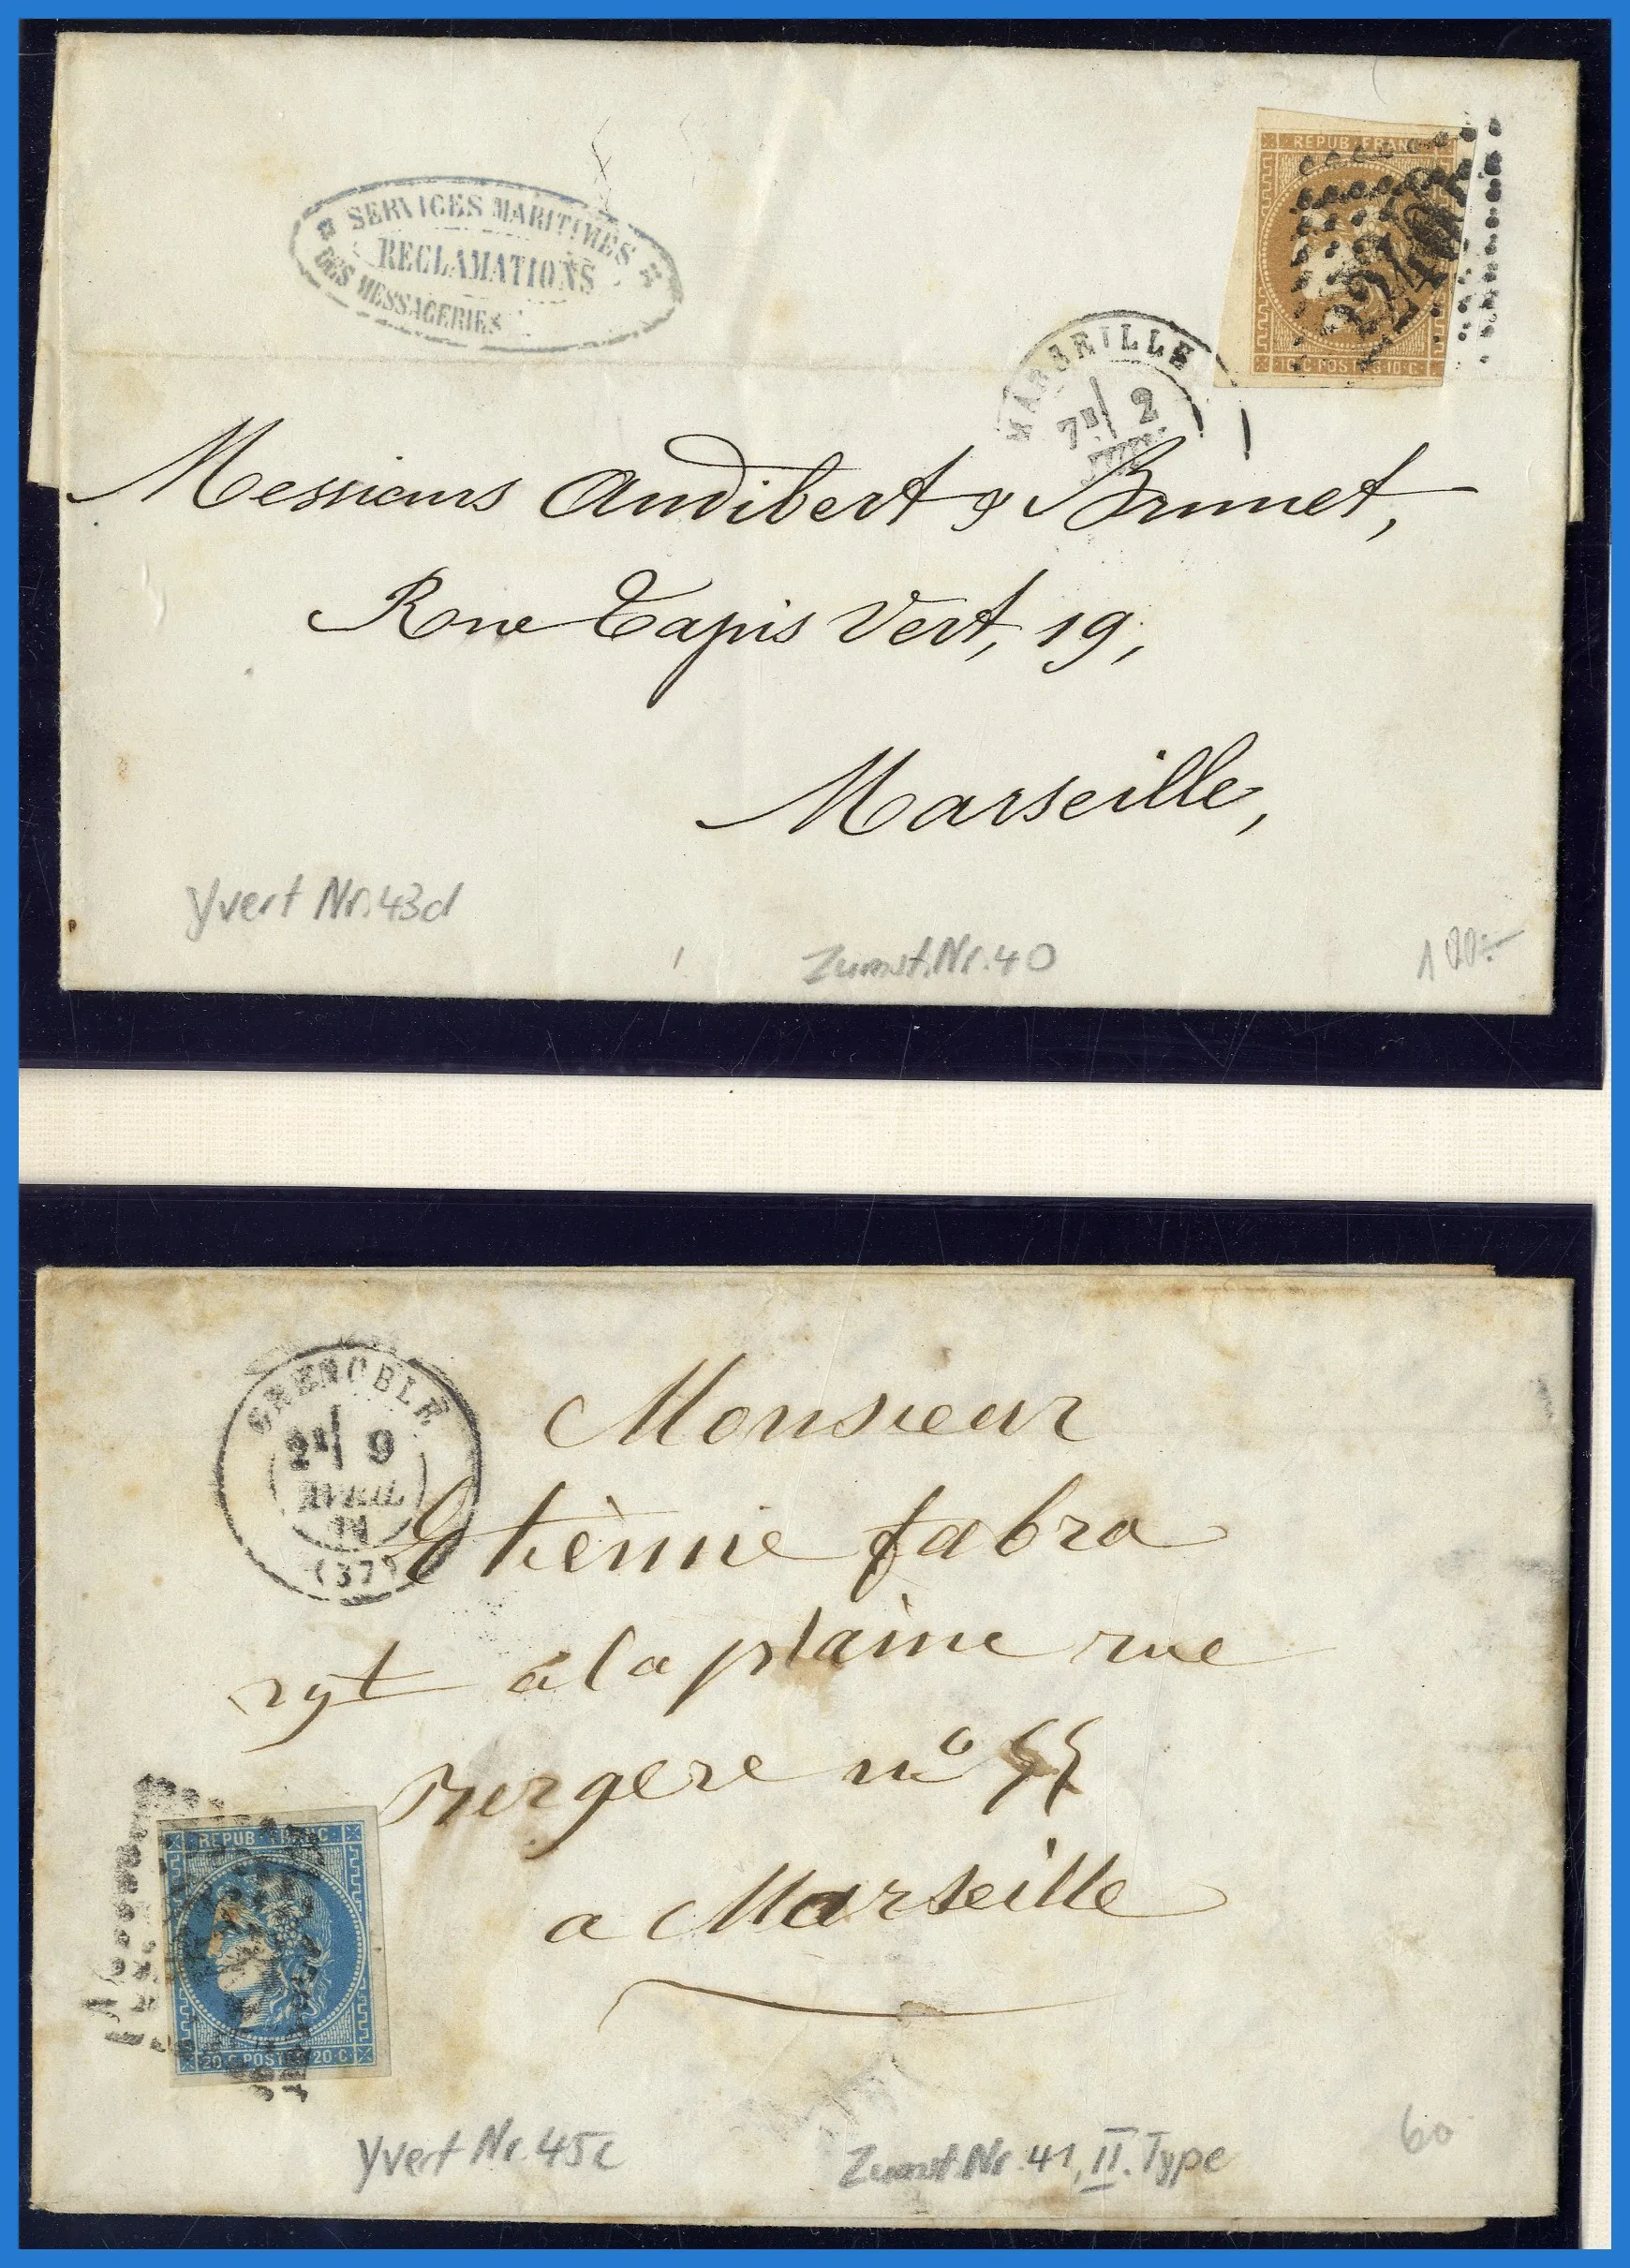 SERVICES MARITIMES
RECLAMATIONS
DES MESSAGERIES
REPUB FRANC
2240
10 C POSTES 10 C
MARSEILLE
7E 2
Messieurs Audibert & Brunet,
Rue Tapis Vert, 19,
Marseille,
Yvert Nr. 43d
Zumst. Nr. 40
100.-
GRENOBLE
2E 9
AVRIL
(37)
Monsieur
Etiènne fabra
à la plaine rue
Bergere no
a Marseille
REPUB FRANC
20 C POSTES 20 C
Yvert Nr. 45c
Zumst. Nr. 41, II. Type
60